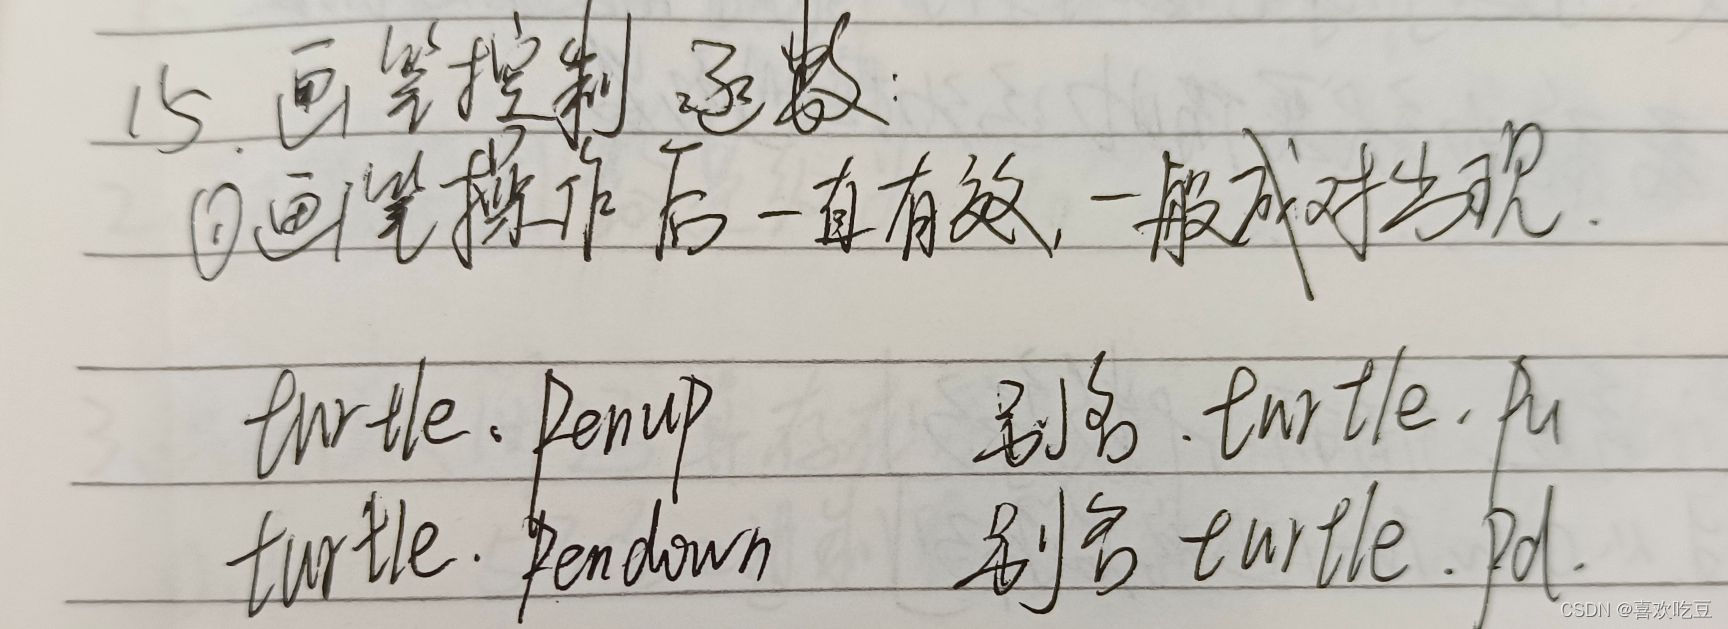 15.画笔控制函数:
①画笔操作后一直有效,一般成对出现.
turtle.penup 别名.turtle.pu
turtle.pendown 别名 turtle.pd.
CSDN @喜欢吃豆